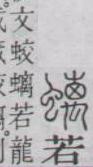 螭若
文蛟螭若龍